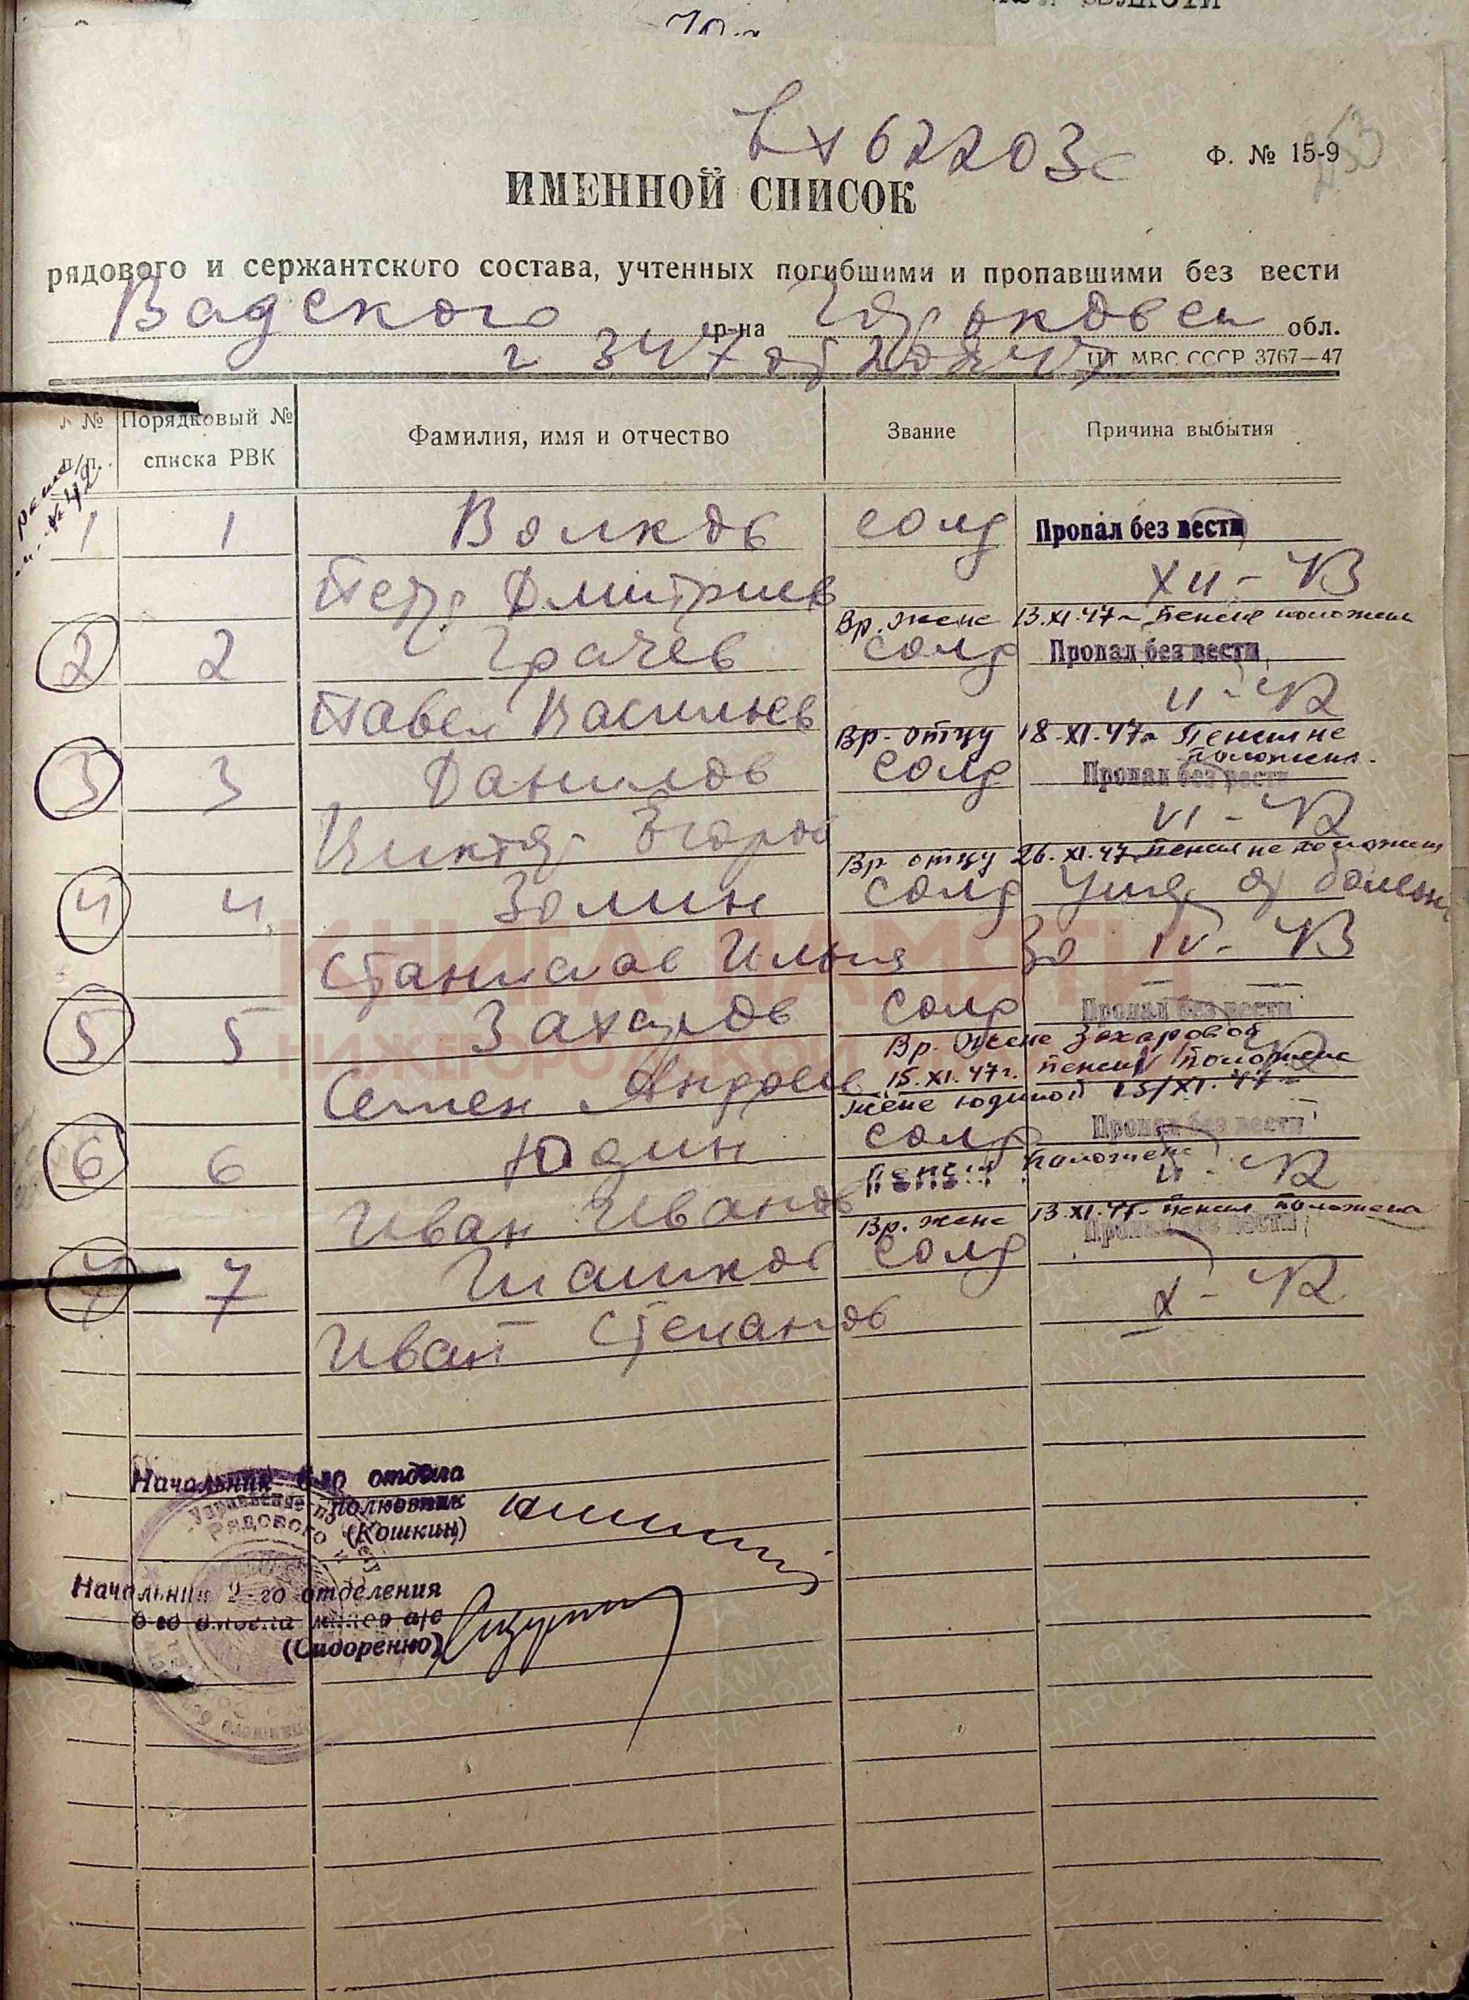 Вх 62203с
Ф. № 15-9
253
ИМЕННОЙ СПИСОК
рядового и сержантского состава, учтенных погибшими и пропавшими без вести
Вадского р-на Горьковск обл.
ЦТ МВС СССР 3767—47
№№ п/п. Порядковый № списка РВК Фамилия, имя и отчество Звание Причина выбытия
1 1 Волков солд Пропал без вести
Петр Дмитриев XII-43
Вр. жене 13.XI.47г Пенсия положена
2 2 Грачев солд Пропал без вести
Павел Васильев II-42
Вр. отцу 18.XI.47г Пенсия не
положена.
3 3 Данилов солд Пропал без вести
Виктор Егоров VI-42
Вр отцу 26.XI.47 пенсия не положена
4 4 Зомин солд Умер от болезн
Станислав Ильич 30 IV-43
5 5 Захаров солд Пропал без вести
Вр. жене Захаровой
Семен Андреев 15.XI.47г. пенсия положена
жене Юдиной 13/XI.47г
6 6 Юдин солд Пропал без вести
Пенсия положена
Иван Иванов II-42
Вр. жене 13.XI.47г. пенсия положена
7 7 Шашков солд Пропал без вести
Иван Степанов X-42
Начальник 6-го отдела
полковник
(Кошкин)
Начальник 2-го отделения
6-го отдела
(Сидоренко)
КНИГА ПАМЯТИ
НИЖЕГОРОДСКОЙ
ПАМЯТЬ
НАРОДА